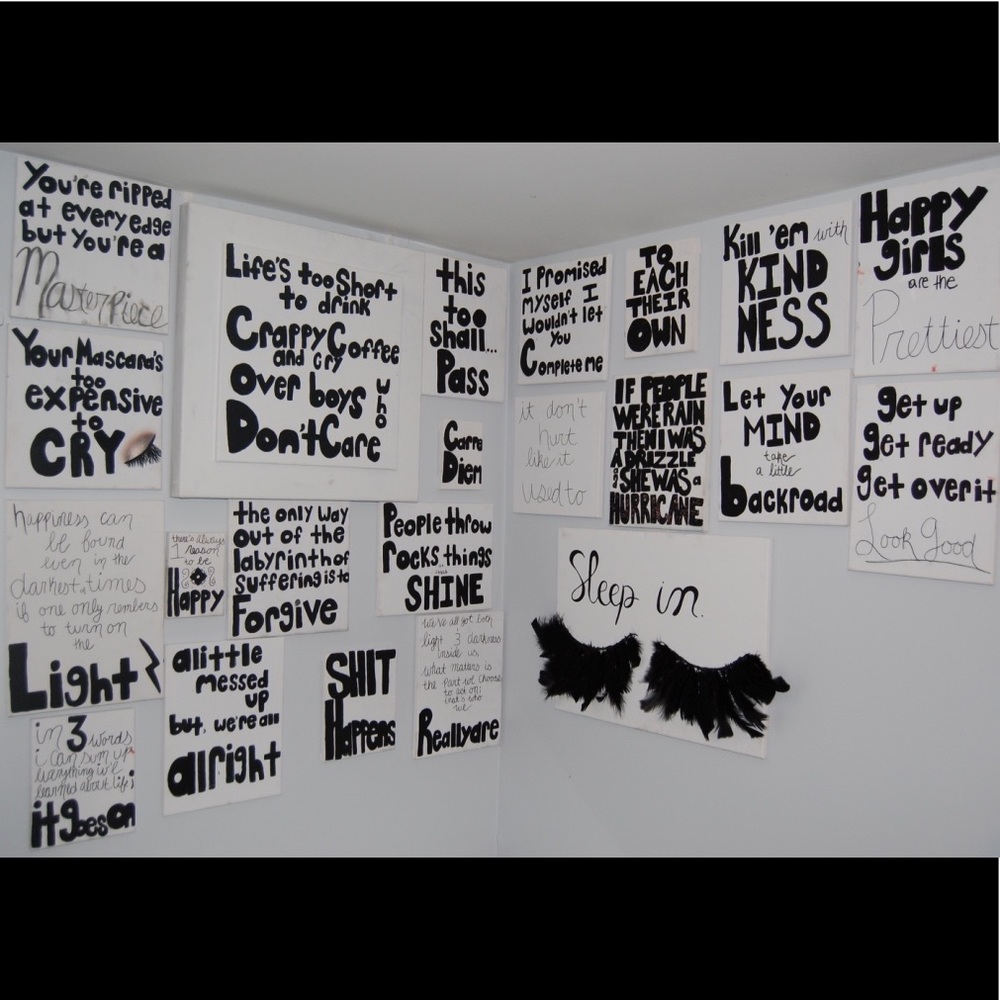 You're ripped
at every edge
but you're a
Masterpiece
Your Mascara's
too
expensive
to
CRY
happiness can
be found
even in the
darkest times
if one only rembers
to turn on
the
Light
in 3 words
i can sum up
everything i've
learned about life;
it goes on
Life's too Short
to drink
Crappy Coffee
and cry
Over boys who
Don't Care
there's always
1 reason
to be
Happy
the only way
out of the
labyrinth of
suffering is to
Forgive
a little
messed
up
but, we're all
alright
this
too
shall...
Pass
Carpe
Diem
People throw
rocks things
that
SHINE
SHIT
Happens
we've all got both
light & darkness
inside us,
what matters is
the part we choose
to act on;
that's who
we
Really are
I Promised
myself I
Wouldn't let
You
Complete me
it don't
hurt
like it
used to
TO
EACH
THEIR
OWN
IF PEOPLE
WERE RAIN
THEN I WAS
A DRIZZLE
& SHE WAS a
HURRICANE
Kill 'em with
KIND
NESS
Let Your
MIND
take
a little
backroad
Happy
girls
are the
Prettiest
get up
get ready
get over it
Look Good
Sleep in.